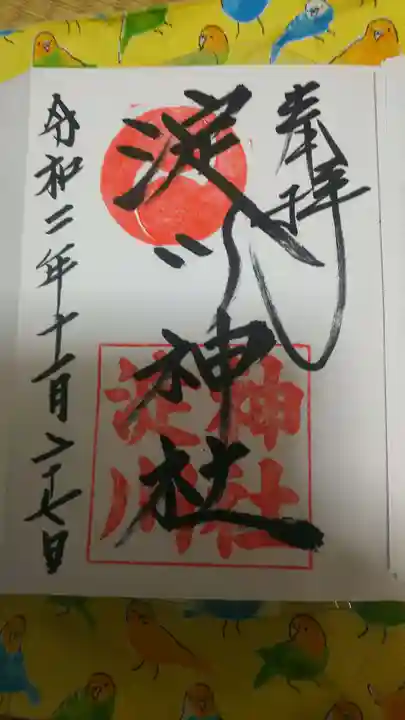 奉拝
淀川神社
神社
淀川
令和二年十一月二十七日